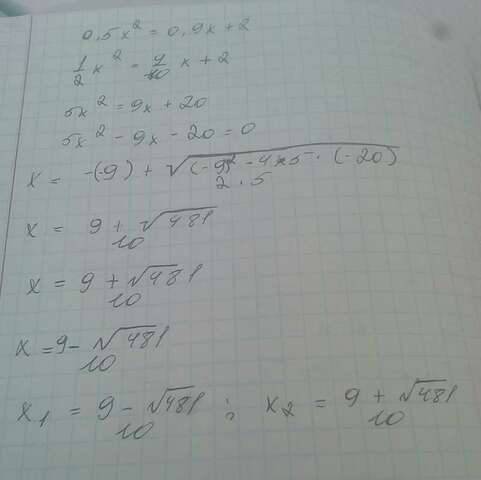 0,5x² = 0,9x + 2
1/2 x² = 9/10 x + 2
5x² = 9x + 20
5x² - 9x - 20 = 0
x = -(-9) + √(-9)² - 4×5 · (-20) / 2 · 5
x = 9 + √481 / 10
x = 9 + √481 / 10
x = 9 - √481 / 10
x₁ = 9 - √481 / 10 ; x₂ = 9 + √481 / 10